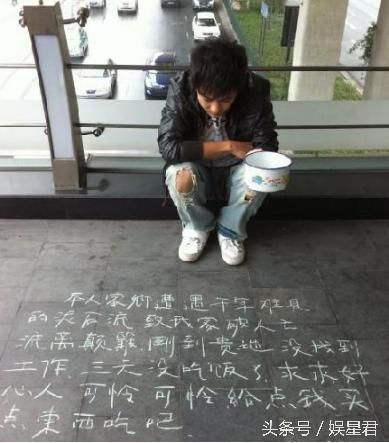 本人家鄉遭遇千年难見
的泥石流 致我家破人亡
流离颠簸 剛到贵地 没找到
工作,三天没吃饭了 求求好
心人 可怜可怜 給点錢买
点東西吃吧.
头条号 / 娱星君